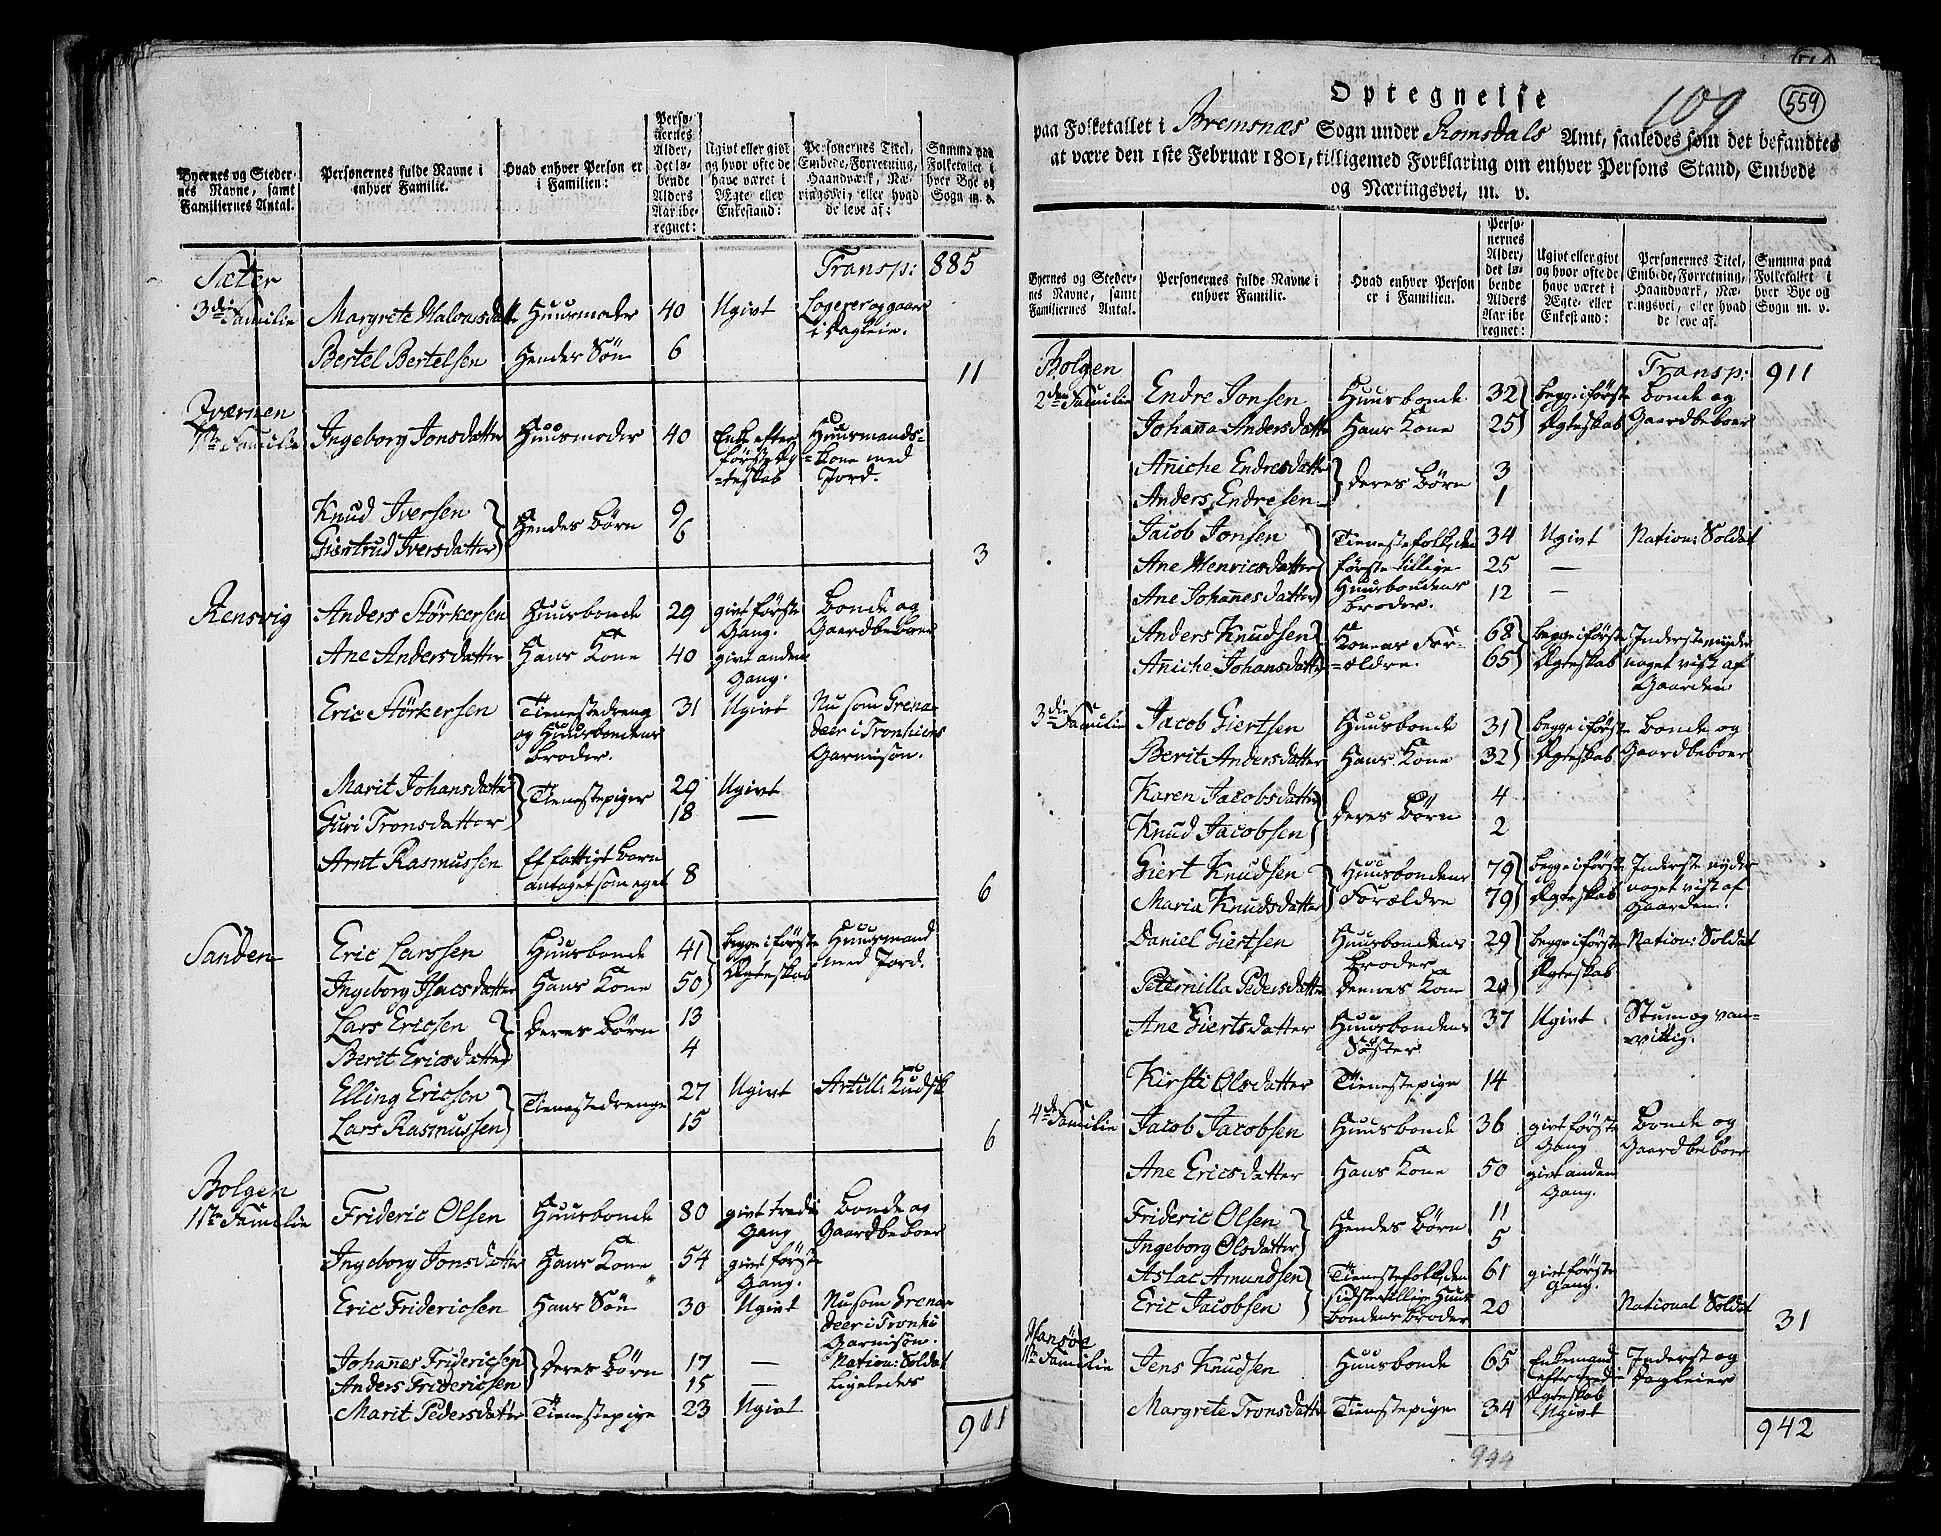 Byernes og Steder-
nes Navne, samt
Familiernes Antal.
Personernes fulde Navne i
enhver Familie.
Hvad enhver Person er
i Familien:
Perso-
nernes
Alder,
det is-
bende
Alders
Aar ibe-
regnet:
Ugivt eller givt
og hvor ofte de
have været i
Ægte- eller
Enkestand:
Personernes Titel,
Embede, Forretning,
Haandværk, Næ-
ringsvei, eller hvad
de leve af:
Summa paa
Folketallet i
hver Bye og
Sogn m. v.
Transp: 885
Sæter
3die Familie Margrete Halvorsdatt Huusmoder 40 Ugivt Logerer og gaar
i Dagleie.
Bertel Bertelsen Hendes Søn 6
11
Qværnen
1ste Familie Ingeborg Jonsdatter Huusmoder 40 Enke efter Huusmands-
første Æg- =Kone med
=teskab Jord.
Knud Iversen } Hendes Børn 9
Giertrud Iversdatter 6
3
Rensvig Anders Störkersen Huusbonde 29 givt første Bonde og
Gang. Gaardbeboer
Ane Andersdatter Hans Kone 40 givt anden
Gang.
Eric Störkersen Tienestedreng 31 Ugivt Nu som Grena-
og Huusbondens deer i Tronhiems
Broder. Garnison.
Marit Johansdatter } Tienestepiger 29 Ugivt
Guri Tronsdatter 18 —
Arnt Rasmussen Et fattigt Barn
antaget som eget 8
6
Sanden Eric Larssen Huusbonde 41 } begge i første Huusmand
Ingeborg Isacsdatter Hans Kone 50 Ægteskab med Jord.
Lars Ericsen } Deres Børn 13
Berit Ericsdatter 4
Elling Ericsen } Tienestedrenge 27 Ugivt Artill: Kudsk
Lars Rasmussen 15
6
Bolgen
1ste Familie Frideric Olsen Huusbonde 80 givt tredie Bonde og
Gang Gaardbeboer
Ingeborg Jonsdatter Hans Kone 54 givt første
Gang.
Eric Fridericsen Hans Søn 30 Ugivt Nu som Grena-
deer i Tronhi
Garnison.
Johanes Fridericsen } Deres Børn 17 — Nation: Soldat
Anders Fridericsen 15 — Ligeledes
Marit Pedersdatter Tienestepige 23 Ugivt
911
109
559
Optegnelse
paa Folketallet i Bremsnæs Sogn under Romsdals Amt, saaledes som det befandtes
at være den 1ste Februar 1801, tilligemed Forklaring om enhver Persons Stand, Embede
og Næringsvei, m. v.
Byernes og Steder-
nes Navne, samt
Familiernes Antal.
Personernes fulde Navne i
enhver Familie.
Hvad enhver Person
er i Familien.
Perso-
nernes
Alder,
det is-
bende
Alders
Aar ibe
regnet:
Ugivt eller givt
og hvor ofte de
have været i
Ægte- eller
Enkestand:
Personernes Titel,
Embede, Forretning,
Haandværk, Næ-
ringsvei, eller hvad
de leve af.
Summa paa
Folketallet i
hver Bye og
Sogn m. v.
Bolgen Transp: 911
2den Familie Endre Jonsen Huusbonde 32 } begge i første Bonde og
Johanna Andersdatter Hans Kone 25 Ægteskab Gaardbeboer
Aniche Endresdatter } deres Børn 3
Anders Endresen 1
Jacob Jonsen } Tienestefolk, den 34 Ugivt Nation: Soldat
Ane Henricsdatter første tillige 25 —
Ane Johanesdatter Huusbondens 12 —
Broder.
Anders Knudsen } Konens For- 68 } begge i første Inderste nyder
Aniche Johansdatter =ældre. 65 Ægteskab noget vist af
Gaarden
3die Familie Jacob Giertsen Huusbonde 31 } begge i første Bonde og
Berit Andersdatter Hans Kone 32 Ægteskab Gaardbeboer
Karen Jacobsdatter } deres Børn 4
Knud Jacobsen 2
Giert Knudsen } Huusbondens 79 } begge i første Inderste nyder
Maria Knudsdatter Forældre 79 Ægteskab noget vist af
Gaarden.
Daniel Giertsen Huusbondens 29 } begge i første Nation: Soldat
Broder Ægteskab
Peternilla Pedersdatter Dennes Kone 29
Ane Giertsdatter Huusbondens 37 Ugivt Stum og van-
Søster vittig.
Kirsti Olsdatter Tienestepige 14
4de Familie Jacob Jacobsen Huusbonde 36 givt første Bonde og
Gang Gaardbeboer
Ane Ericsdatter Hans Kone 50 givt anden
Gang.
Frideric Olsen } Hendes Børn 11
Ingeborg Olsdatter 5
Aslac Amundsen } Tienestefolk, den 61 givt første
Gang.
Eric Jacobsen sidste tillige Huus- 20 National Soldat
bondens Broder
31
1ste Familie Jens Knudsen Huusbonde 65 Enkemand Inderst og
efter tredie Dagleier
Ægteskab
Margrete Tronsdatter Tienestepige 34 Ugivt
942
944